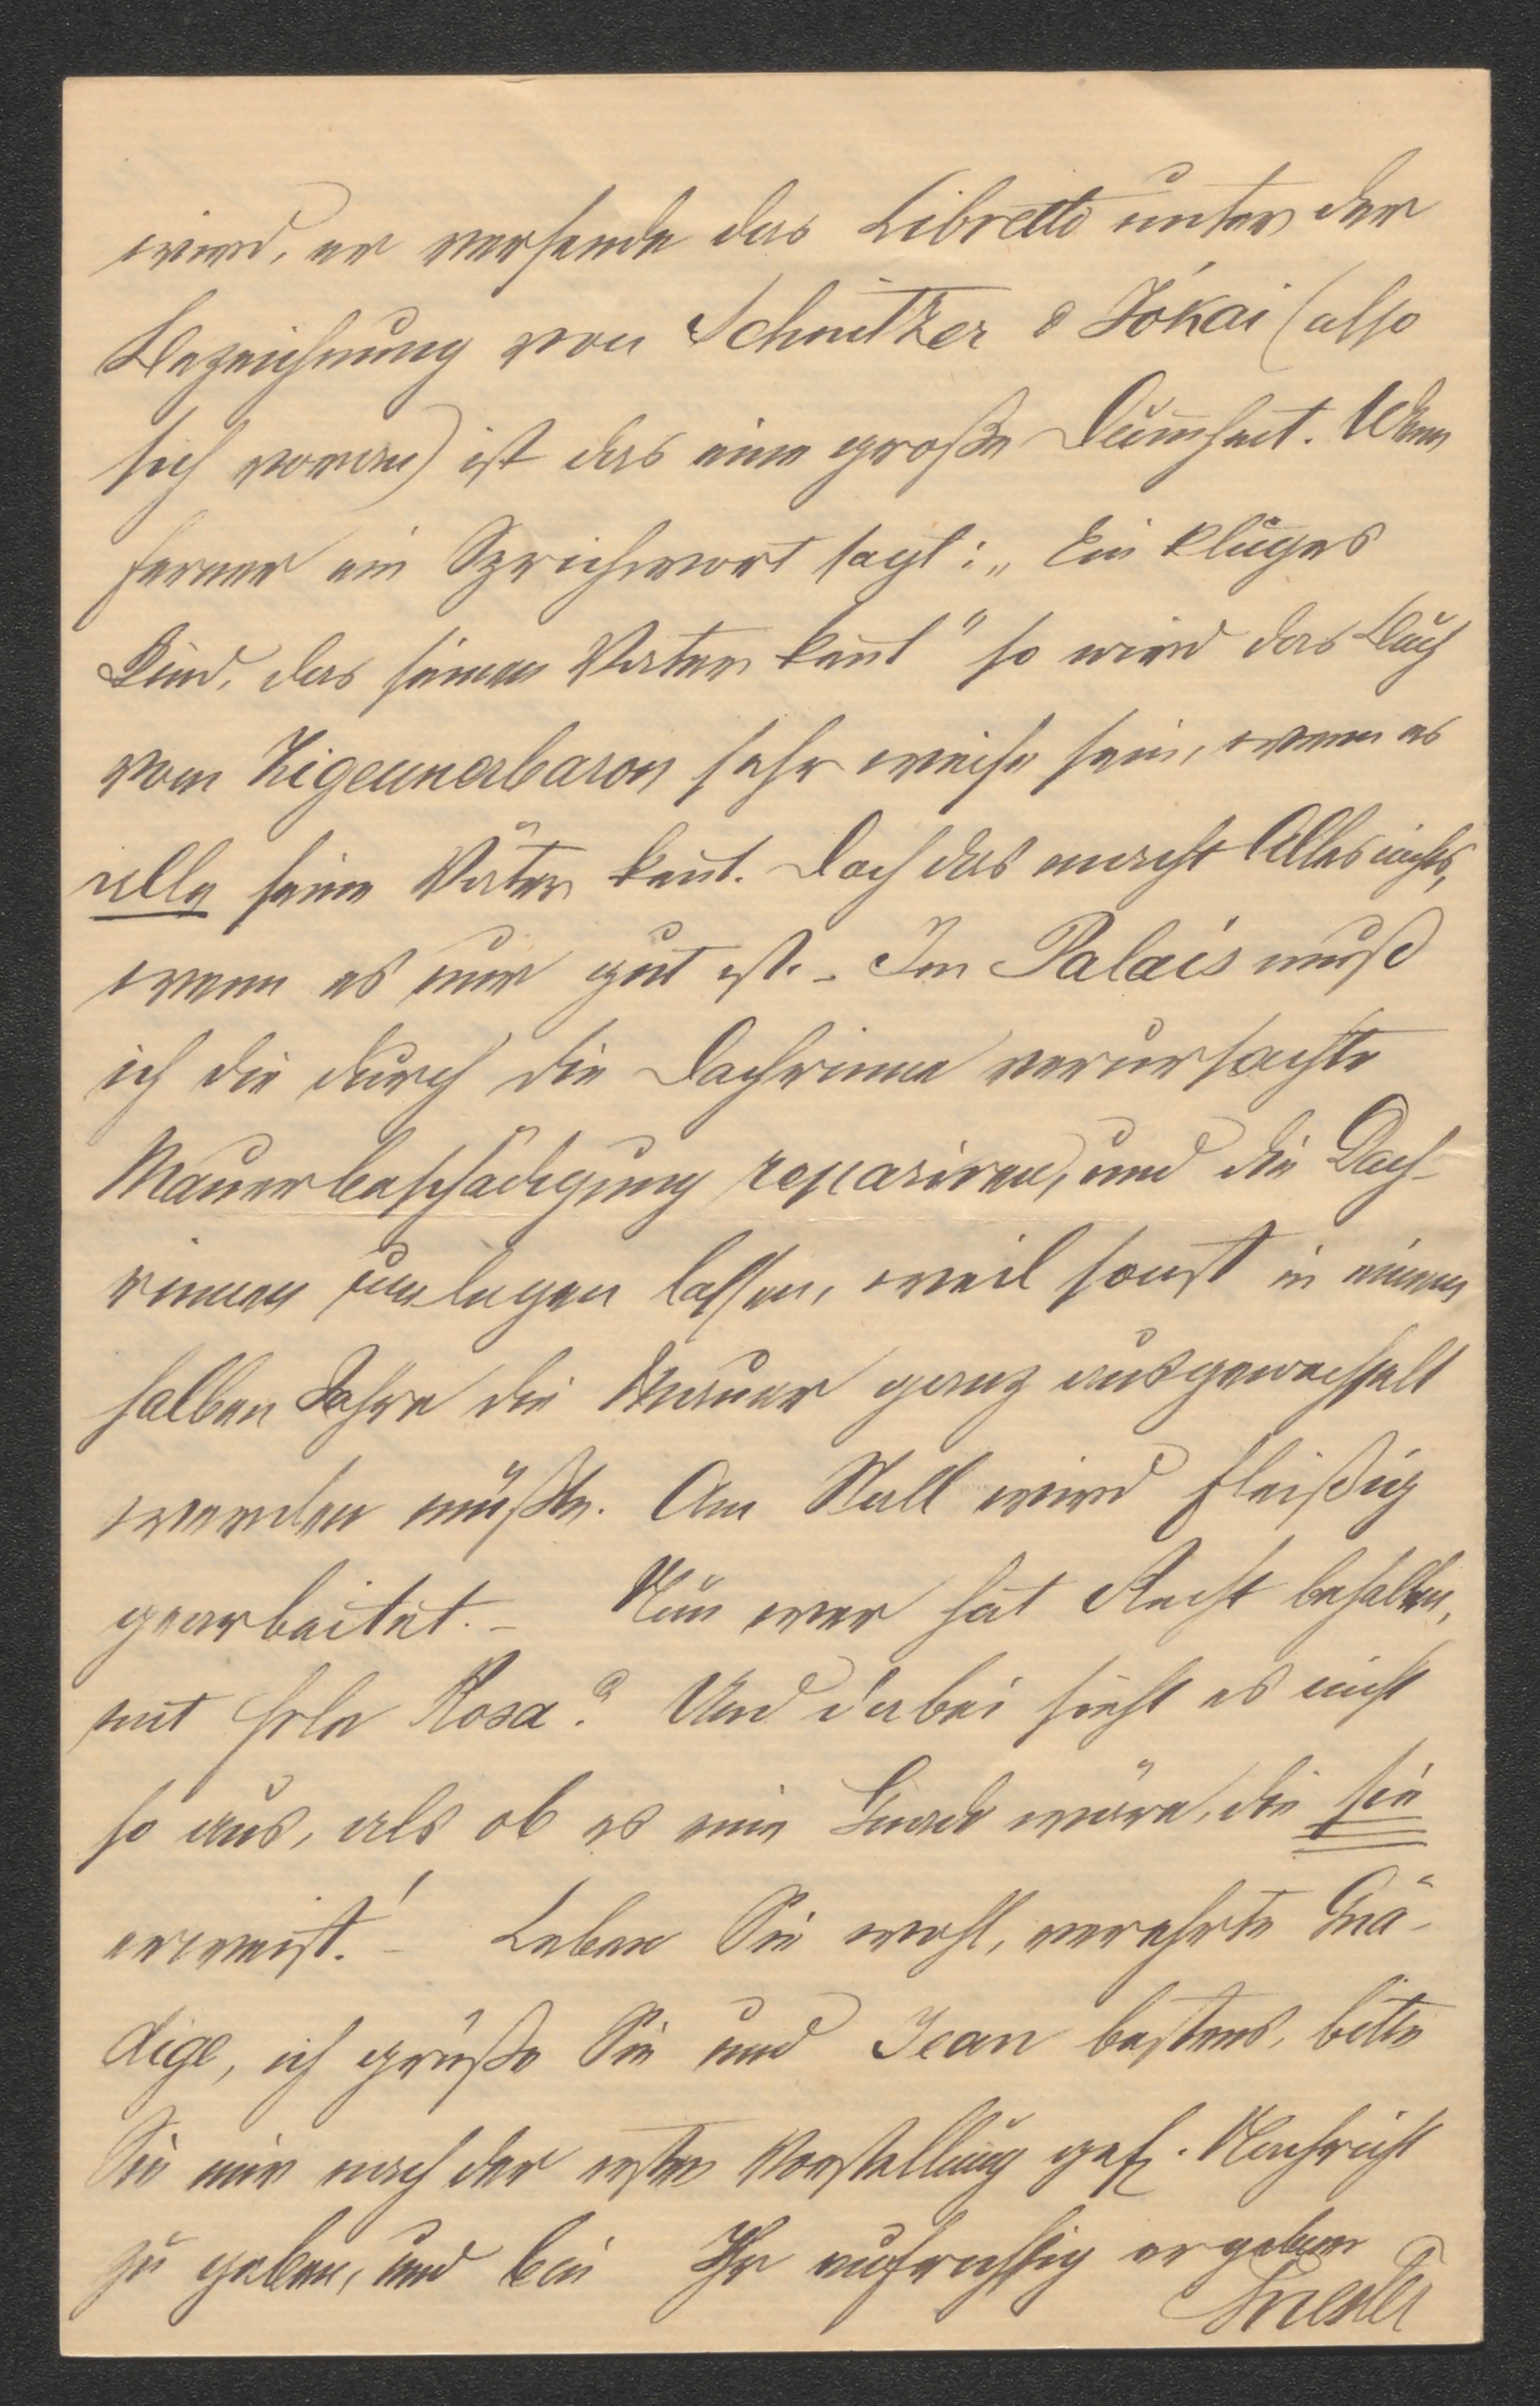 wird, er versende das Libretto unter der
Bezeichnung von Schnitzer & Jókai (also
sich voran) ist das eine große Dum̅heit. Wenn
ferner ein Sprichwort sagt: „Ein kluges
Kind, das seinen Vater kent" so wird das Buch
vom Zigeunerbaron sehr weise sein, wenn es
alle seine Väter kent. Doch das macht Alles nichts,
wenn es nur gut ist. – Im Palais muß
ich die durch die Dachrinne verursachte
Mauerbeschädigung repariren, und die Dach-
rinnen umlegen lassen, weil sonst in einem
halben Jahre die Mauer ganz ausgewechselt
werden müßte. Am Stall wird fleißig
gearbeitet. – Nun wer hat Recht behalten,
mit Frln Rosa? Und dabei sieht es nicht
so aus, als ob es eine Gnade wäre, die sie
erweist! – Leben Sie wohl, verehrte Gnä-
dige, ich grüße Sie und Jean bestens, bitte
Sie mir nach der ersten Vorstellung gef. Nachricht
zu geben, und bin Ihr aufrichtig ergebener
Priester